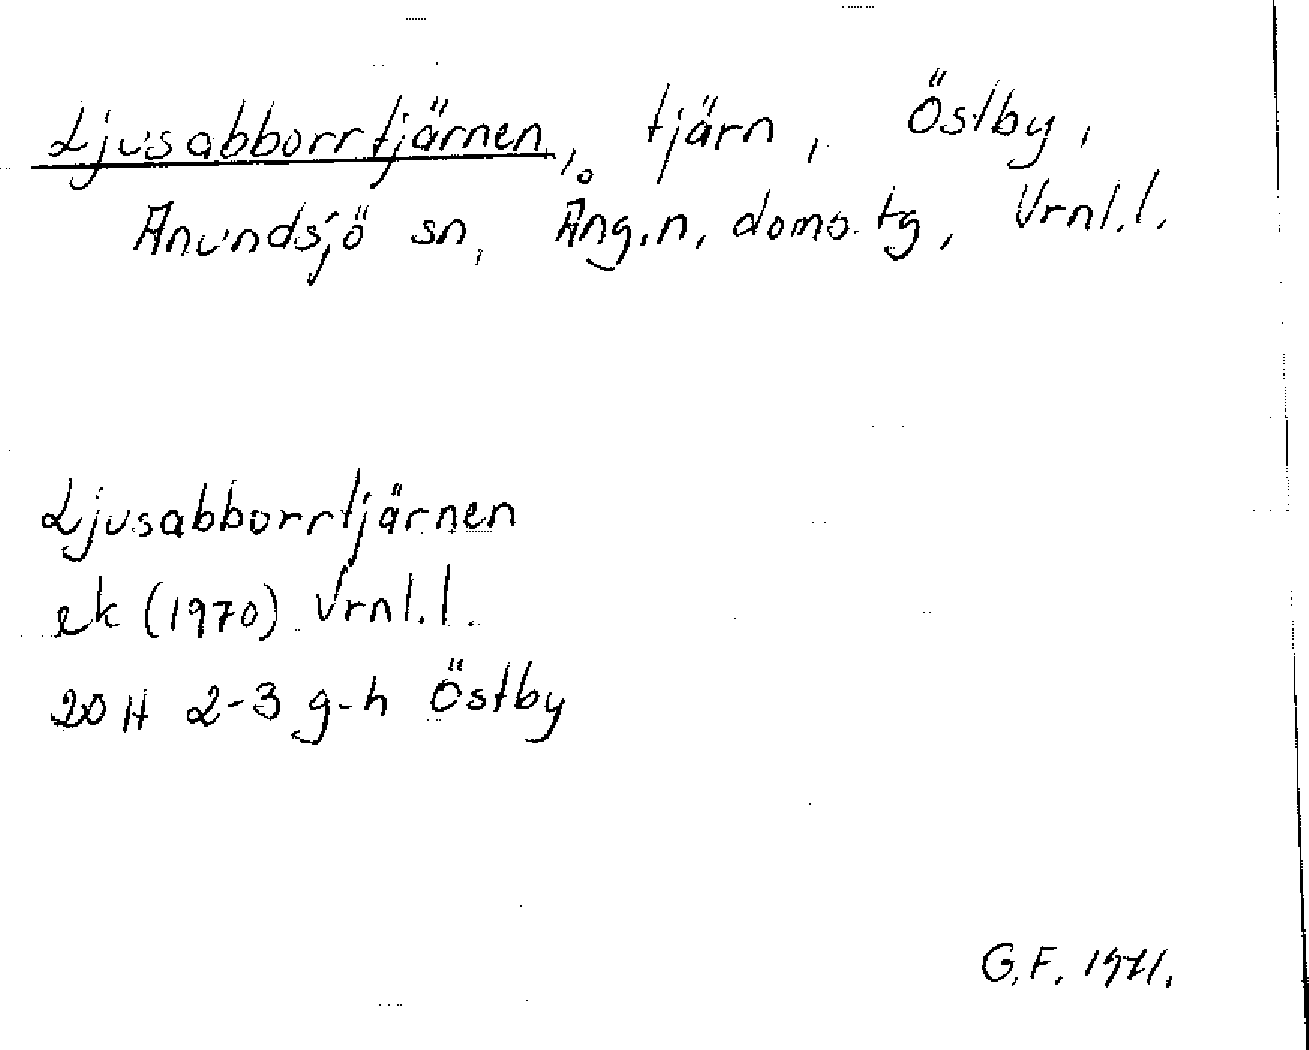 Ljusabborrtjärnen, tjärn, Östby,
Anundsjö sn, Ång.n, doms.tg, Vrnl.l.
Ljusabborrtjärnen
ek (1970) Vrnl.l.
20 H 2-3 g-h Östby
G.F. 1971.